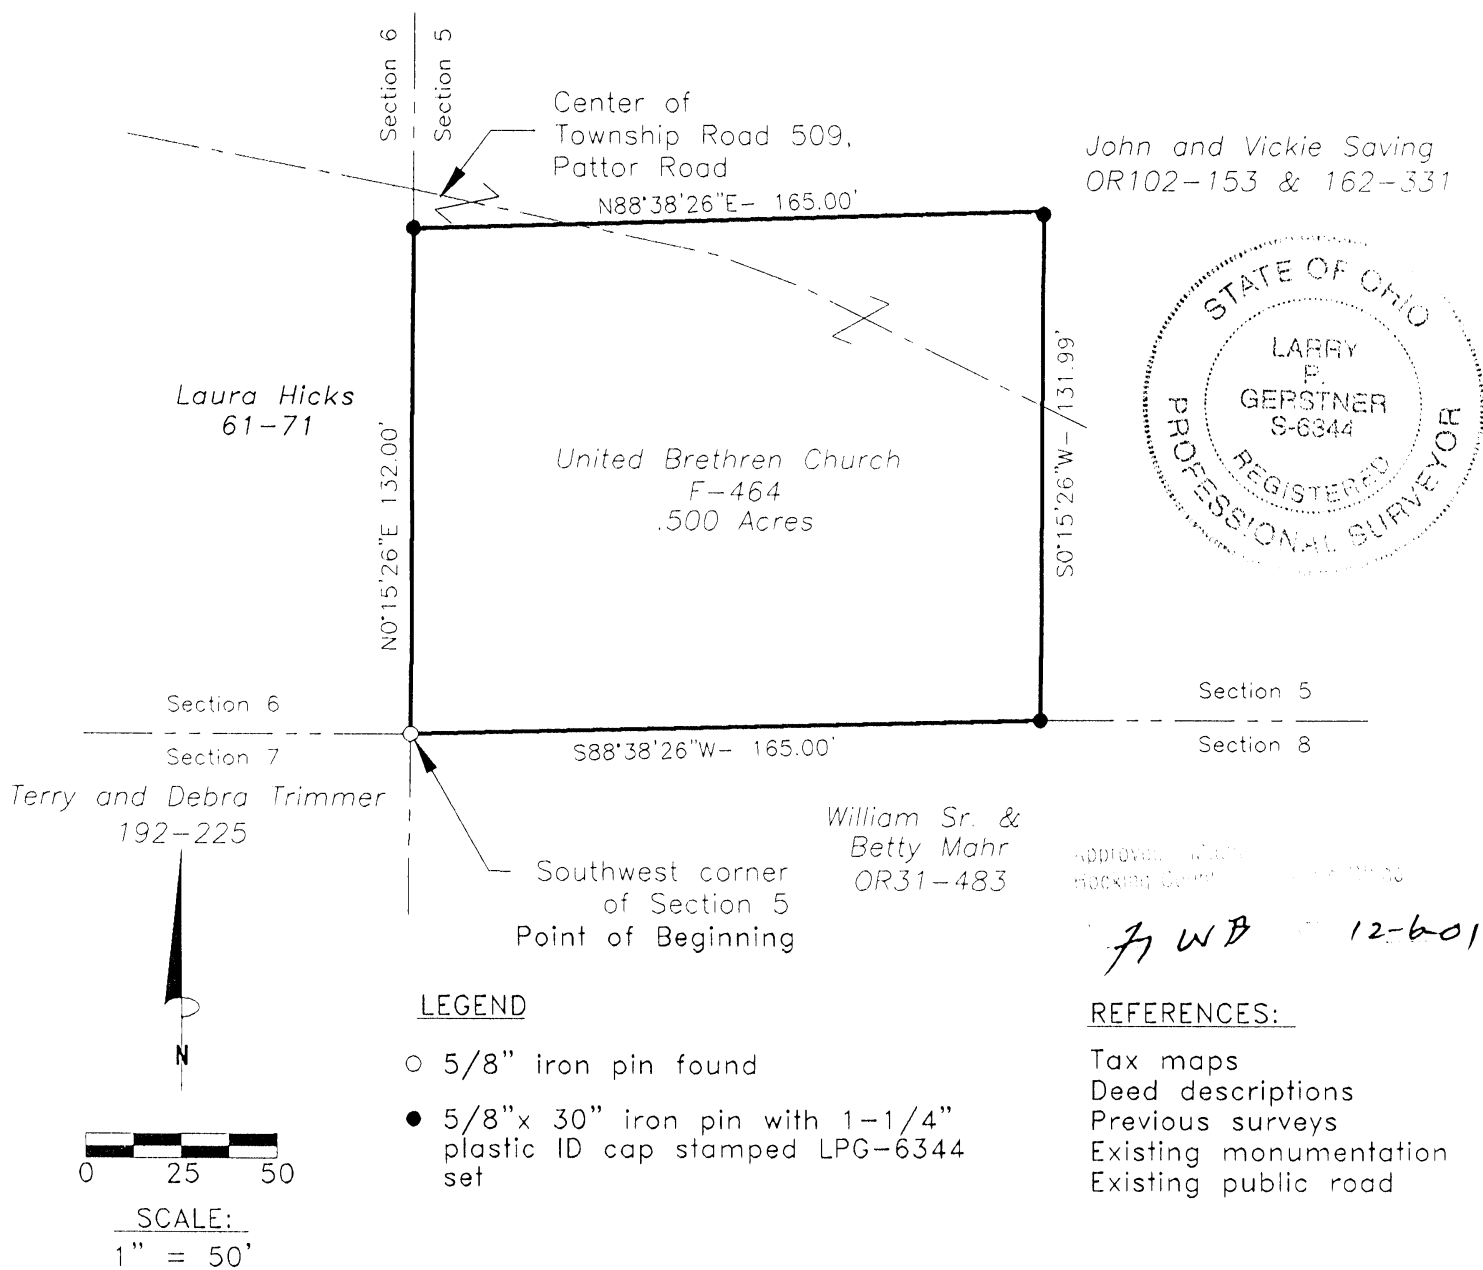 Section 6
Section 5
Center of
Township Road 509,
Pattor Road
John and Vickie Saving
OR102-153 & 162-331
N88°38'26"E- 165.00'
STATE OF OHIO
LARRY
P.
GERSTNER
S-6344
REGISTERED
PROFESSIONAL SURVEYOR
Laura Hicks
61-71
N0°15'26"E 132.00'
United Brethren Church
F-464
.500 Acres
S0°15'26"W- 131.99'
Section 6
Section 7
Section 5
Section 8
S88°38'26"W- 165.00'
Terry and Debra Trimmer
192-225
William Sr. &
Betty Mahr
OR31-483
Southwest corner
of Section 5
Point of Beginning
Approved
Hocking
12-6-01
N
0 25 50
SCALE:
1" = 50'
LEGEND
5/8" iron pin found
5/8"x 30" iron pin with 1-1/4"
plastic ID cap stamped LPG-6344
set
REFERENCES:
Tax maps
Deed descriptions
Previous surveys
Existing monumentation
Existing public road